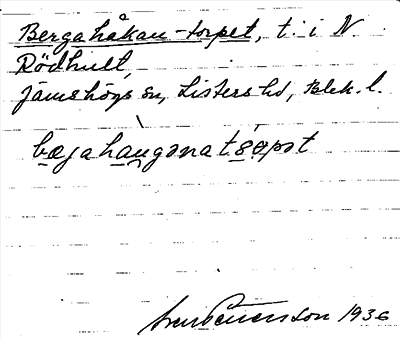 Bergahåkan-torpet, t. i N.
Rödhult,
Jämshögs sn, Listers hd, Blek. l.
bæjahaugənatSəpət
Sven Benson 1936